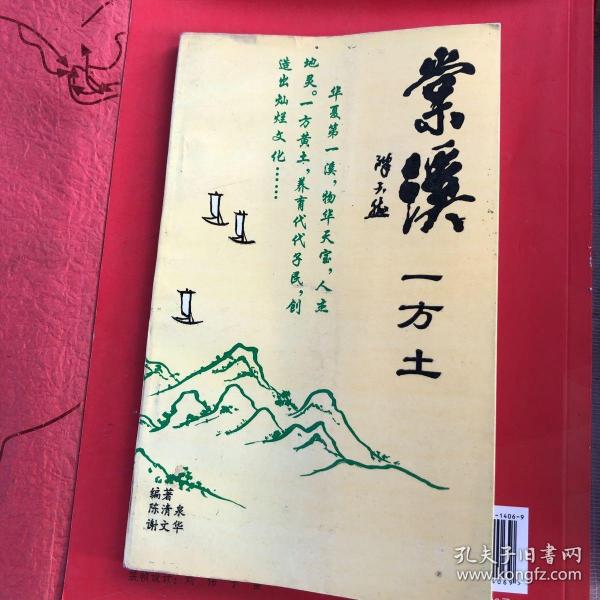 棠溪
一方土
华夏第一溪，物华天宝，人杰
地灵。一方黄土，养育代代子民，创
造出灿烂文化……
编著
陈清泉
谢文华
-1406-9
孔夫子旧书网
www.kongfz.com